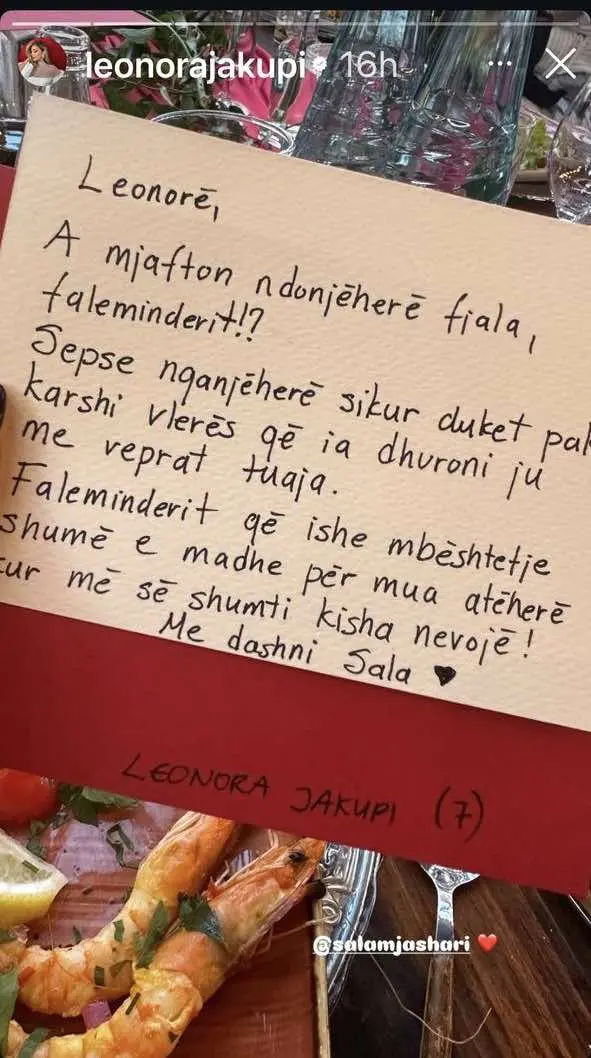 leonorajakupi 16h
Leonorē,
A mjafton ndonjēherē fjala,
faleminderit!?
Sepse nganjēherē sikur duket pak
karshi vlerēs qē ia dhuroni ju
me veprat tuaja.
Faleminderit qē ishe mbēshtetje
shumē e madhe pēr mua atēherē
kur mē sē shumti kisha nevojē!
Me dashni Sala ♥
LEONORA JAKUPI (7)
@salamjashari ❤️